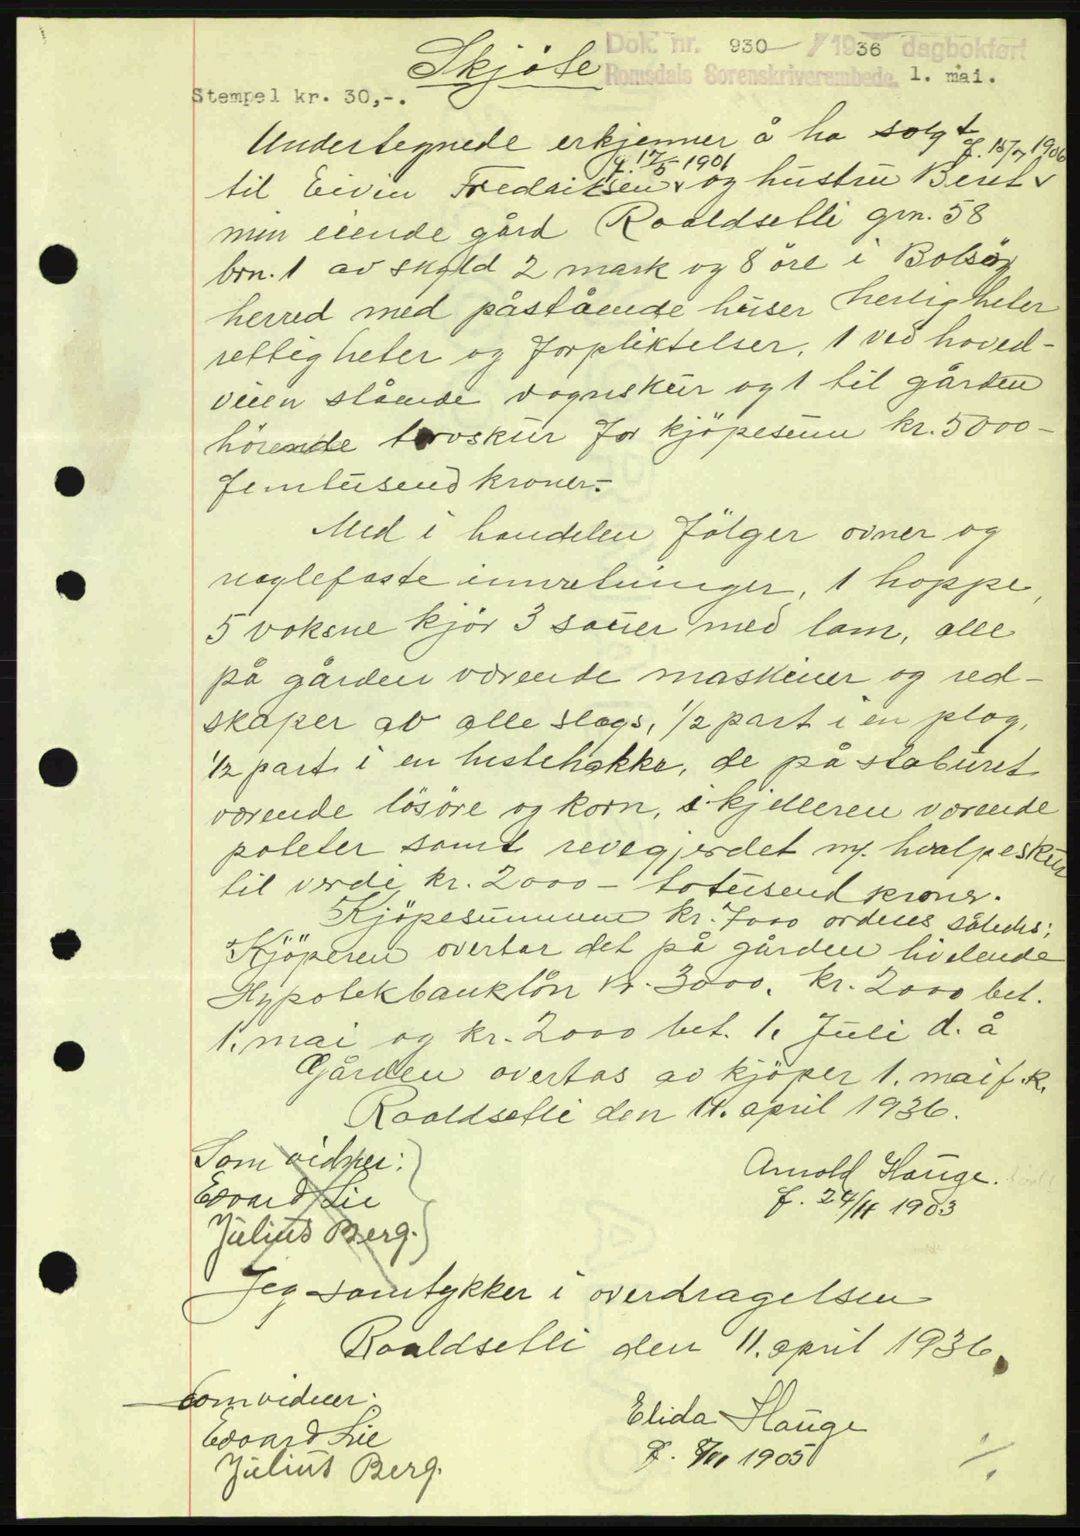 Skjöte
Dok. nr. 930 / 1936 dagbokført
Romsdals Sorenskriverembede. 1. mai.
Stempel kr. 30,-.
Undertegnede erkjenner å ha solgt
f. 17/5 1901 f. 15/7 1906
til Eivin Fredriksen og hustru Beret
min eiende gård Roaldsetli grn. 58
brn. 1 av skyld 2 mark og 8 öre i Bolsöy
herred med påstående huser herligheter
rettigheter og forpliktelser, 1 ved hoved-
veien stående vognskur og 1 til gården
hörende torvskur for kjöpesum kr. 5000-
femtusend kroner.-
Med i handelen fölger ovner og
naglefaste innretninger, 1 hoppe,
5 voksne kjör 3 sauer med lam, alle
på gården værende maskiner og red-
skaper av alle slags, 1/2 part i en plog,
1/2 part i en hestehakke, de på staburet
værende lösöre og korn, i kjelleren værende
poteter samt revegjerdet m/. hvalpeskur
til verdi kr. 2000- totusend kroner.
Kjöpesummen kr. 7000 ordnes således:
Kjöperen overtar det på gården hvilende
Hypotekbanklån kr. 3000, kr. 2000 bet.
1. mai og kr. 2000 bet. 1. Juli d. å
Gården overtas av kjöper 1. mai f.k.
Roaldsetli den 11. april 1936.
Som vidner:
Arnold Hauge.
Edvard Lie
f. 24/11 1903
Julius Berg.
Jeg samtykker i overdragelsen
Roaldsetli den 11. april 1936.
Som vidner:
Elida Hauge
Edvard Lie
f. 8/11 1905
Julius Berg.